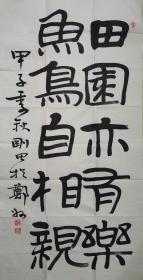 田園亦有樂
魚鳥自相親
甲子季秋剛田於鄭州